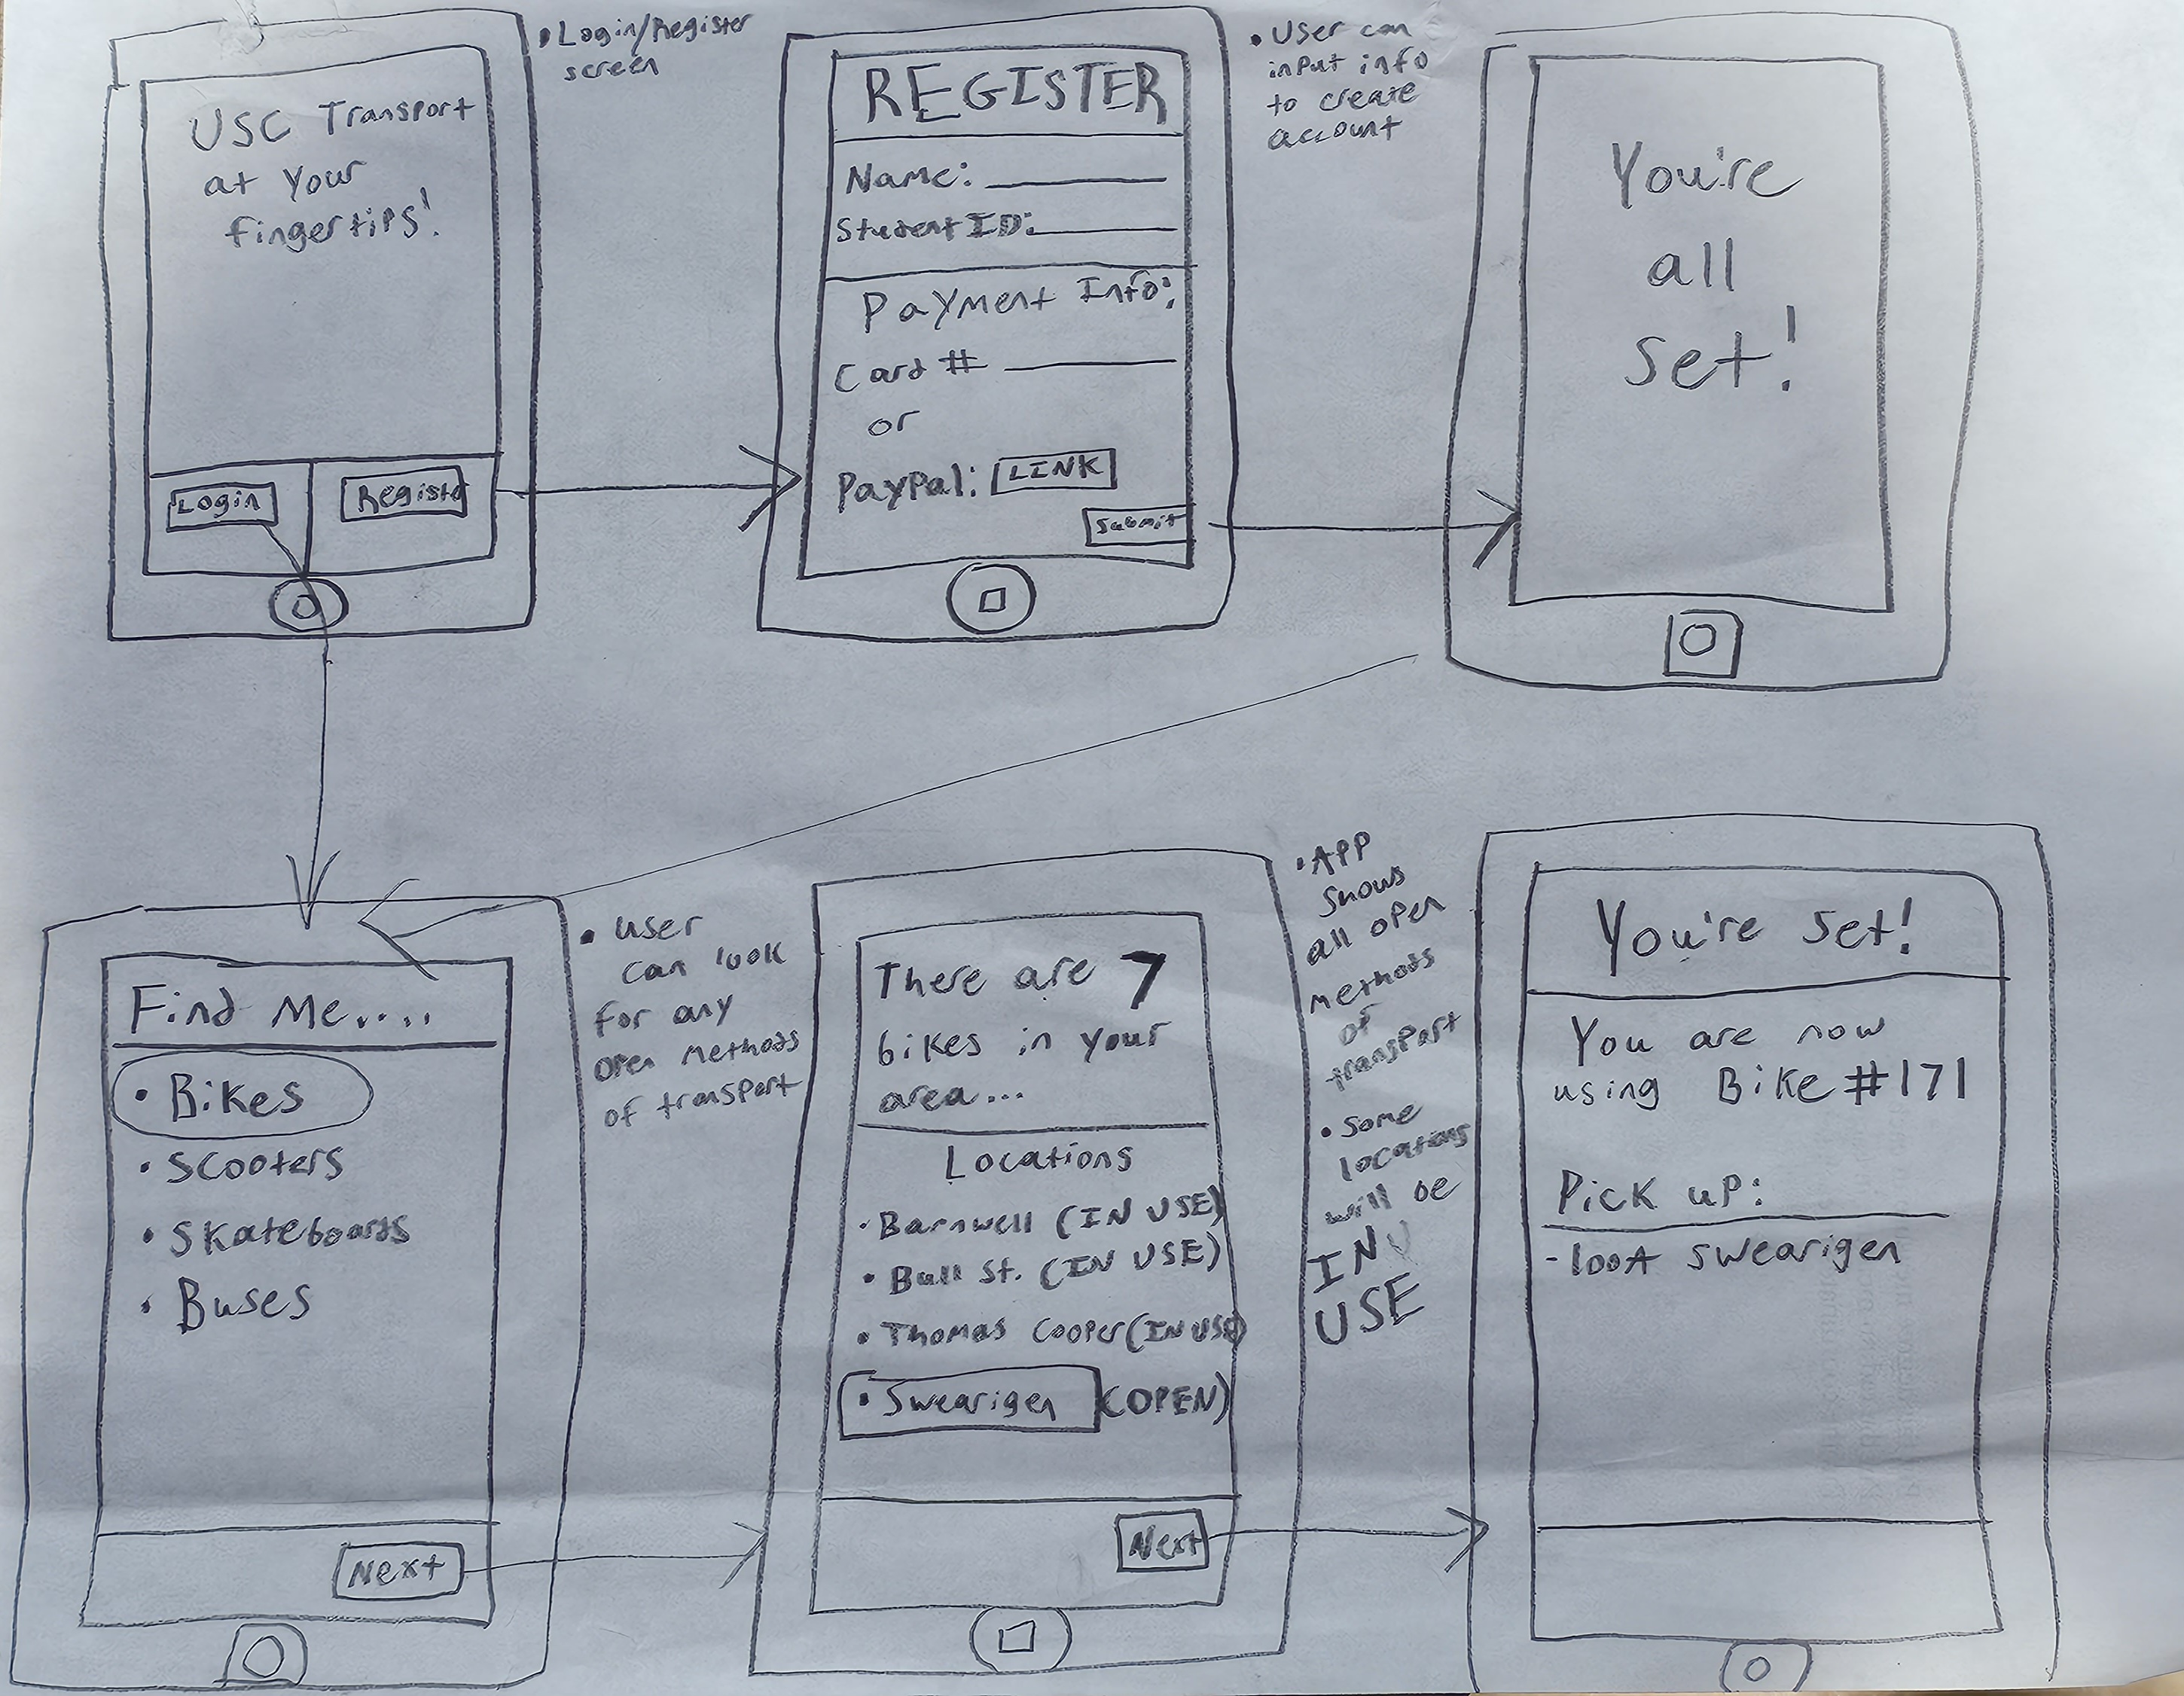 USC Transport
at your
fingertips!
Login
Register
• Login/Register
screen
REGISTER
Name:
Student ID:
Payment Info:
Card #
or
PayPal: LINK
Submit
• User can
input info
to create
account
You're
all
set!
Find Me....
• Bikes
• Scooters
• Skateboards
• Buses
Next
• user
can look
for any
open methods
of transport
There are 7
bikes in your
area...
Locations
• Barnwell (IN USE)
• Bull St. (IN USE)
• Thomas Cooper (IN USE)
• Swearigen (OPEN)
Next
• APP
shows
all open
methods
of
transport
• Some
locations
will be
IN
USE
You're set!
You are now
using Bike #171
Pick up:
- 100A swearigen